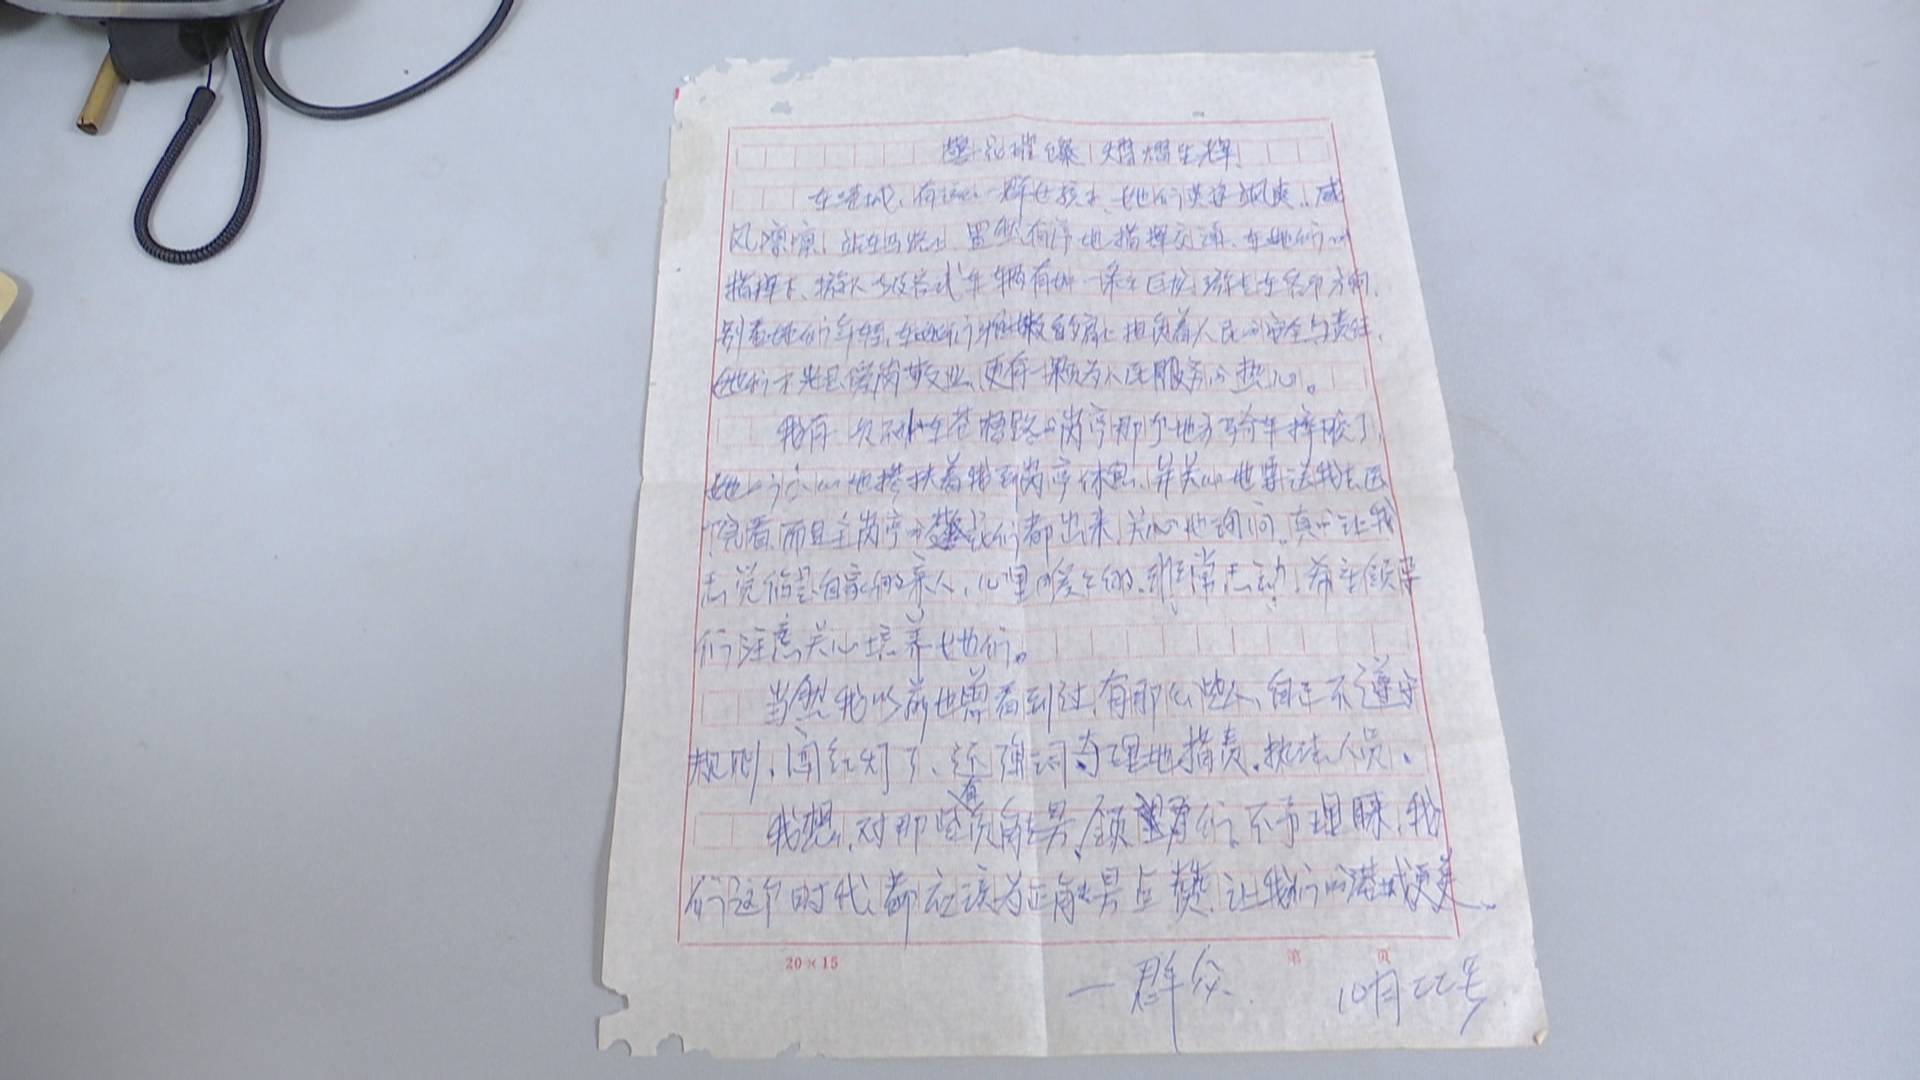 警花璀璨 熠熠生辉
在港城,有这么一群女孩子,她们英姿飒爽,威
风凛凛,站在马路上,井然有序地指挥交通,在她们的
指挥下,行人以及各式车辆有
别看她们年轻,在她们稚嫩的肩上担负着人民的安全与责任,
她们不光是爱岗敬业,更有一颗为人民服务的热心。
我有一次不小心在苍梧路的岗亭那个地方骑车摔跤了,
她们小心地搀扶着我到岗亭休息,并关心地要送我去医
院看,而且主岗亭的警花们都出来,关心地询问,真的让我
感觉像是自家的亲人,心里暖暖的,非常感动,希望领导
们注意关心培养她们。
当然我以前也曾看到过,有那么些人,自己不遵守
规则,闯红灯了,还强词夺理地指责,执法人员。
我想,对那些有负能量,领导们,不予理睬,我
们这个时代,都应该为正能量点赞,让我们的港城更美。
20×15
第 页
一群众
10月22号